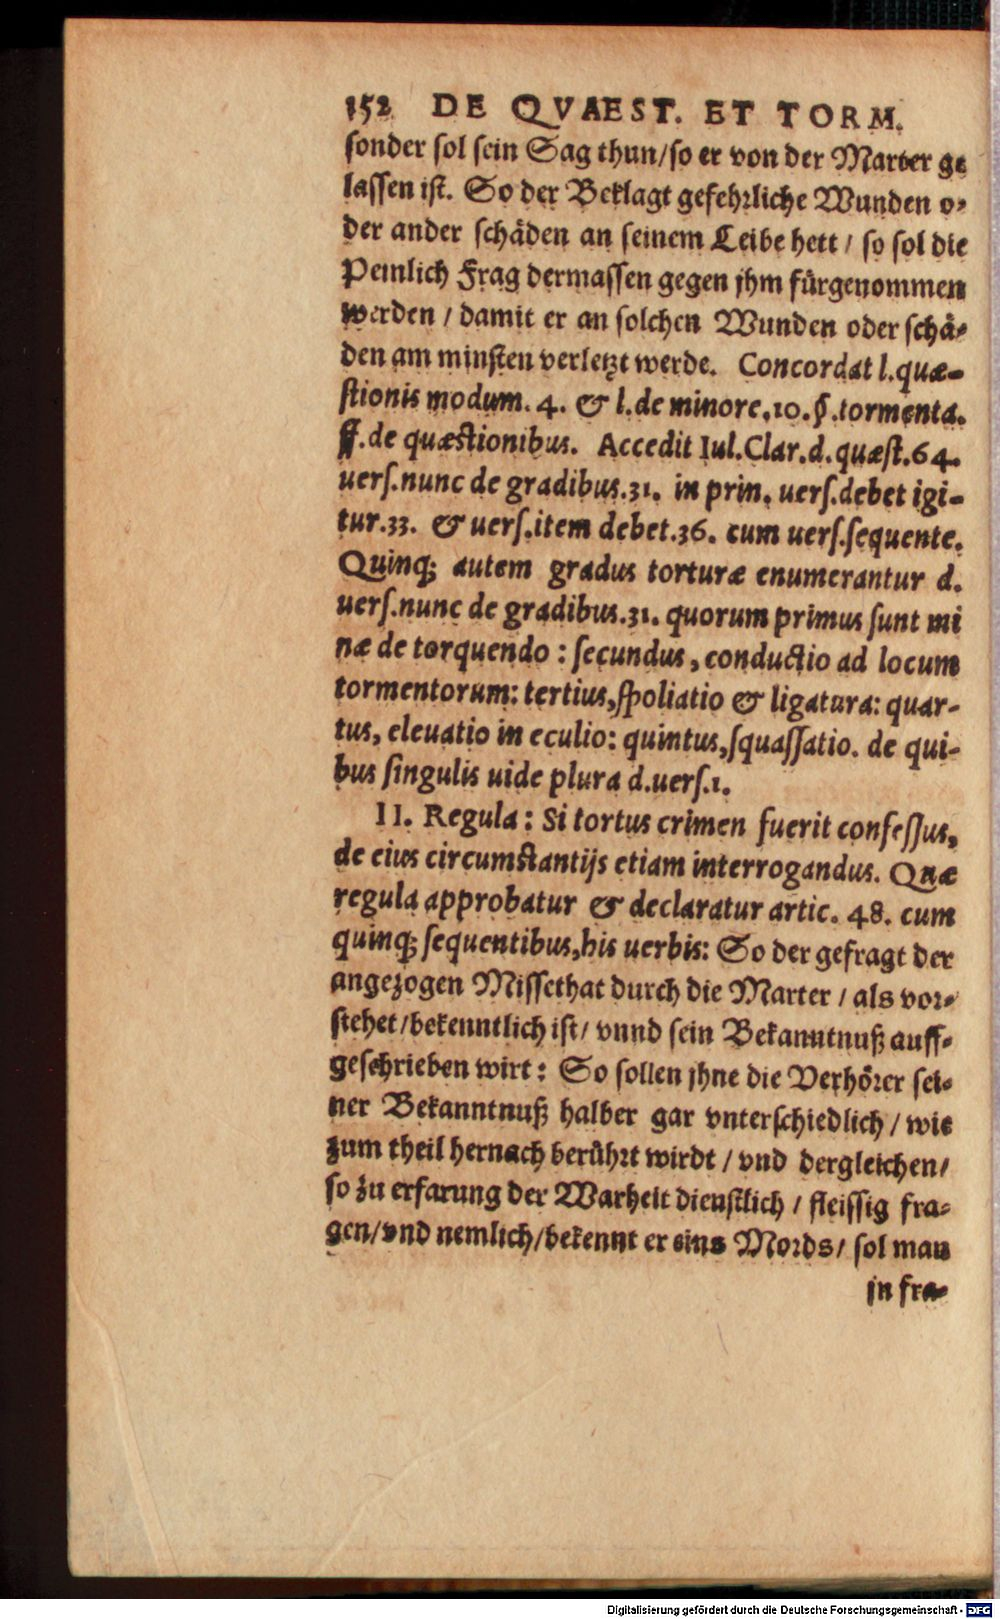 152 DE QVAEST. ET TORM.
sonder sol sein Sag thun/so er von der Marter ge
lassen ist. So der Beklagt gefehrliche Wunden o-
der ander schäden an seinem Leibe hett / so sol die
Peinlich Frag dermassen gegen jhm fürgenommen
werden / damit er an solchen Wunden oder schä-
den am minsten verletzt werde. Concordat l.quæ-
stionis modum. 4. & l.de minore.10.§.tormenta.
ff.de quæstionibus. Accedit Iul.Clar.d.quæst.64.
uers.nunc de gradibus.31. in prin. uers.debet igi-
tur.33. & uers.item debet.36. cum uers.sequente.
Quinq; autem gradus torturæ enumerantur d.
uers.nunc de gradibus.31. quorum primus sunt mi
næ de torquendo : secundus, conductio ad locum
tormentorum: tertius,spoliatio & ligatura: quar-
tus, eleuatio in eculio: quintus,squassatio. de qui-
bus singulis uide plura d.uers.1.
II. Regula : Si tortus crimen fuerit confessus,
de eius circumstantijs etiam interrogandus. Quæ
regula approbatur & declaratur artic. 48. cum
quinq; sequentibus,his uerbis: So der gefragt der
angezogen Missethat durch die Marter / als vor-
stehet/bekenntlich ist/ vnnd sein Bekanntnuß auff-
geschrieben wirt : So sollen jhne die Verhörer sei-
ner Bekanntnuß halber gar vnterschiedlich / wie
zum theil hernach berührt wirdt / vnd dergleichen/
so zu erfarung der Warheit dienstlich / fleissig fra-
gen/vnd nemlich/bekennt er eins Mords/ sol man
jn fra-
Digitalisierung gefördert durch die Deutsche Forschungsgemeinschaft - DFG